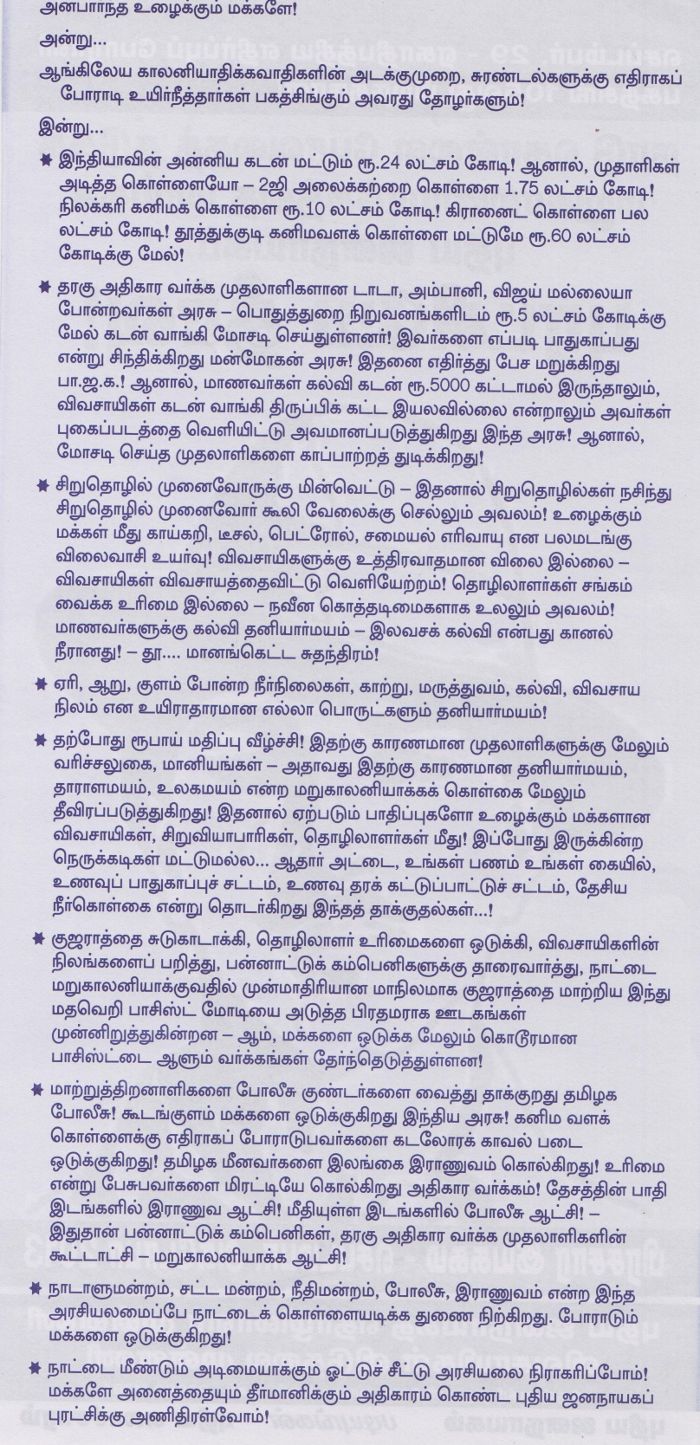 அன்பார்ந்த உழைக்கும் மக்களே!
அன்று...
ஆங்கிலேய காலனியாதிக்கவாதிகளின் அடக்குமுறை, சுரண்டல்களுக்கு எதிராகப்
போராடி உயிர்நீத்தார்கள் பகத்சிங்கும் அவரது தோழர்களும்!
இன்று...
★ இந்தியாவின் அன்னிய கடன் மட்டும் ரூ.24 லட்சம் கோடி! ஆனால், முதாளிகள்
அடித்த கொள்ளையோ – 2ஜி அலைக்கற்றை கொள்ளை 1.75 லட்சம் கோடி!
நிலக்கரி கனிமக் கொள்ளை ரூ.10 லட்சம் கோடி! கிரானைட் கொள்ளை பல
லட்சம் கோடி! தூத்துக்குடி கனிமவளக் கொள்ளை மட்டுமே ரூ.60 லட்சம்
கோடிக்கு மேல்!
★ தரகு அதிகார வர்க்க முதலாளிகளான டாடா, அம்பானி, விஜய் மல்லையா
போன்றவர்கள் அரசு – பொதுத்துறை நிறுவனங்களிடம் ரூ.5 லட்சம் கோடிக்கு
மேல் கடன் வாங்கி மோசடி செய்துள்ளனர்! இவர்களை எப்படி பாதுகாப்பது
என்று சிந்திக்கிறது மன்மோகன் அரசு! இதனை எதிர்த்து பேச மறுக்கிறது
பா.ஜ.க.! ஆனால், மாணவர்கள் கல்வி கடன் ரூ.5000 கட்டாமல் இருந்தாலும்,
விவசாயிகள் கடன் வாங்கி திருப்பிக் கட்ட இயலவில்லை என்றாலும் அவர்கள்
புகைப்படத்தை வெளியிட்டு அவமானப்படுத்துகிறது இந்த அரசு! ஆனால்,
மோசடி செய்த முதலாளிகளை காப்பாற்றத் துடிக்கிறது!
★ சிறுதொழில் முனைவோருக்கு மின்வெட்டு – இதனால் சிறுதொழில்கள் நசிந்து
சிறுதொழில் முனைவோர் கூலி வேலைக்கு செல்லும் அவலம்! உழைக்கும்
மக்கள் மீது காய்கறி, டீசல், பெட்ரோல், சமையல் எரிவாயு என பலமடங்கு
விலைவாசி உயர்வு! விவசாயிகளுக்கு உத்திரவாதமான விலை இல்லை –
விவசாயிகள் விவசாயத்தைவிட்டு வெளியேற்றம்! தொழிலாளர்கள் சங்கம்
வைக்க உரிமை இல்லை – நவீன கொத்தடிமைகளாக உலலும் அவலம்!
மாணவர்களுக்கு கல்வி தனியார்மயம் – இலவசக் கல்வி என்பது கானல்
நீரானது! – தூ.... மானங்கெட்ட சுதந்திரம்!
★ ஏரி, ஆறு, குளம் போன்ற நீர்நிலைகள், காற்று, மருத்துவம், கல்வி, விவசாய
நிலம் என உயிராதாரமான எல்லா பொருட்களும் தனியார்மயம்!
★ தற்போது ரூபாய் மதிப்பு வீழ்ச்சி! இதற்கு காரணமான முதலாளிகளுக்கு மேலும்
வரிச்சலுகை, மானியங்கள் – அதாவது இதற்கு காரணமான தனியார்மயம்,
தாராளமயம், உலகமயம் என்ற மறுகாலனியாக்கக் கொள்கை மேலும்
தீவிரப்படுத்துகிறது! இதனால் ஏற்படும் பாதிப்புகளோ உழைக்கும் மக்களான
விவசாயிகள், சிறுவியாபாரிகள், தொழிலாளர்கள் மீது! இப்போது இருக்கின்ற
நெருக்கடிகள் மட்டுமல்ல... ஆதார் அட்டை, உங்கள் பணம் உங்கள் கையில்,
உணவுப் பாதுகாப்புச் சட்டம், உணவு தரக் கட்டுப்பாட்டுச் சட்டம், தேசிய
நீர்கொள்கை என்று தொடர்கிறது இந்தத் தாக்குதல்கள்...!
★ குஜராத்தை சுடுகாடாக்கி, தொழிலாளர் உரிமைகளை ஒடுக்கி, விவசாயிகளின்
நிலங்களைப் பறித்து, பன்னாட்டுக் கம்பெனிகளுக்கு தாரைவார்த்து, நாட்டை
மறுகாலனியாக்குவதில் முன்மாதிரியான மாநிலமாக குஜராத்தை மாற்றிய இந்து
மதவெறி பாசிஸ்ட் மோடியை அடுத்த பிரதமராக ஊடகங்கள்
முன்னிறுத்துகின்றன – ஆம், மக்களை ஒடுக்க மேலும் கொடூரமான
பாசிஸ்ட்டை ஆளும் வர்க்கங்கள் தேர்ந்தெடுத்துள்ளன!
★ மாற்றுத்திறனாளிகளை போலீசு குண்டர்களை வைத்து தாக்குறது தமிழக
போலீசு! கூடங்குளம் மக்களை ஒடுக்குகிறது இந்திய அரசு! கனிம வளக்
கொள்ளைக்கு எதிராகப் போராடுபவர்களை கடலோரக் காவல் படை
ஒடுக்குகிறது! தமிழக மீனவர்களை இலங்கை இராணுவம் கொல்கிறது! உரிமை
என்று பேசுபவர்களை மிரட்டியே கொல்கிறது அதிகார வர்க்கம்! தேசத்தின் பாதி
இடங்களில் இராணுவ ஆட்சி! மீதியுள்ள இடங்களில் போலீசு ஆட்சி! –
இதுதான் பன்னாட்டுக் கம்பெனிகள், தரகு அதிகார வர்க்க முதலாளிகளின்
கூட்டாட்சி – மறுகாலனியாக்க ஆட்சி!
★ நாடாளுமன்றம், சட்ட மன்றம், நீதிமன்றம், போலீசு, இராணுவம் என்ற இந்த
அரசியலமைப்பே நாட்டைக் கொள்ளையடிக்க துணை நிற்கிறது. போராடும்
மக்களை ஒடுக்குகிறது!
★ நாட்டை மீண்டும் அடிமையாக்கும் ஓட்டுச் சீட்டு அரசியலை நிராகரிப்போம்!
மக்களே அனைத்தையும் தீர்மானிக்கும் அதிகாரம் கொண்ட புதிய ஜனநாயகப்
புரட்சிக்கு அணிதிரள்வோம்!